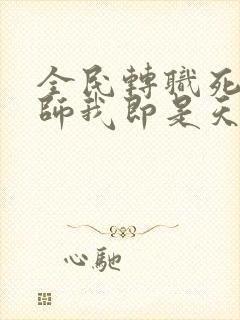 全民轉職死
師我即是天
心馳